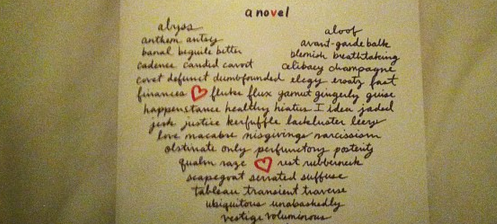 a novel
abyss aloof
anthem antsy avant-garde balk
banal beguile better blemish breathtaking
cadence candid cavort celibacy champagne
covet defunct dumbfounded elegy ersatz fast
finances fluke flux gamut gingerly guise
happenstance healthy hiatus I idea jaded
jerk justice kerfuffle lackluster leery
love macabre misgivings narcissism
obstinate only perfunctory posterity
qualm raze rest rubberneck
scapegoat serrated suffuse
tableau transient traverse
ubiquitous unabashedly
vestige voluminous